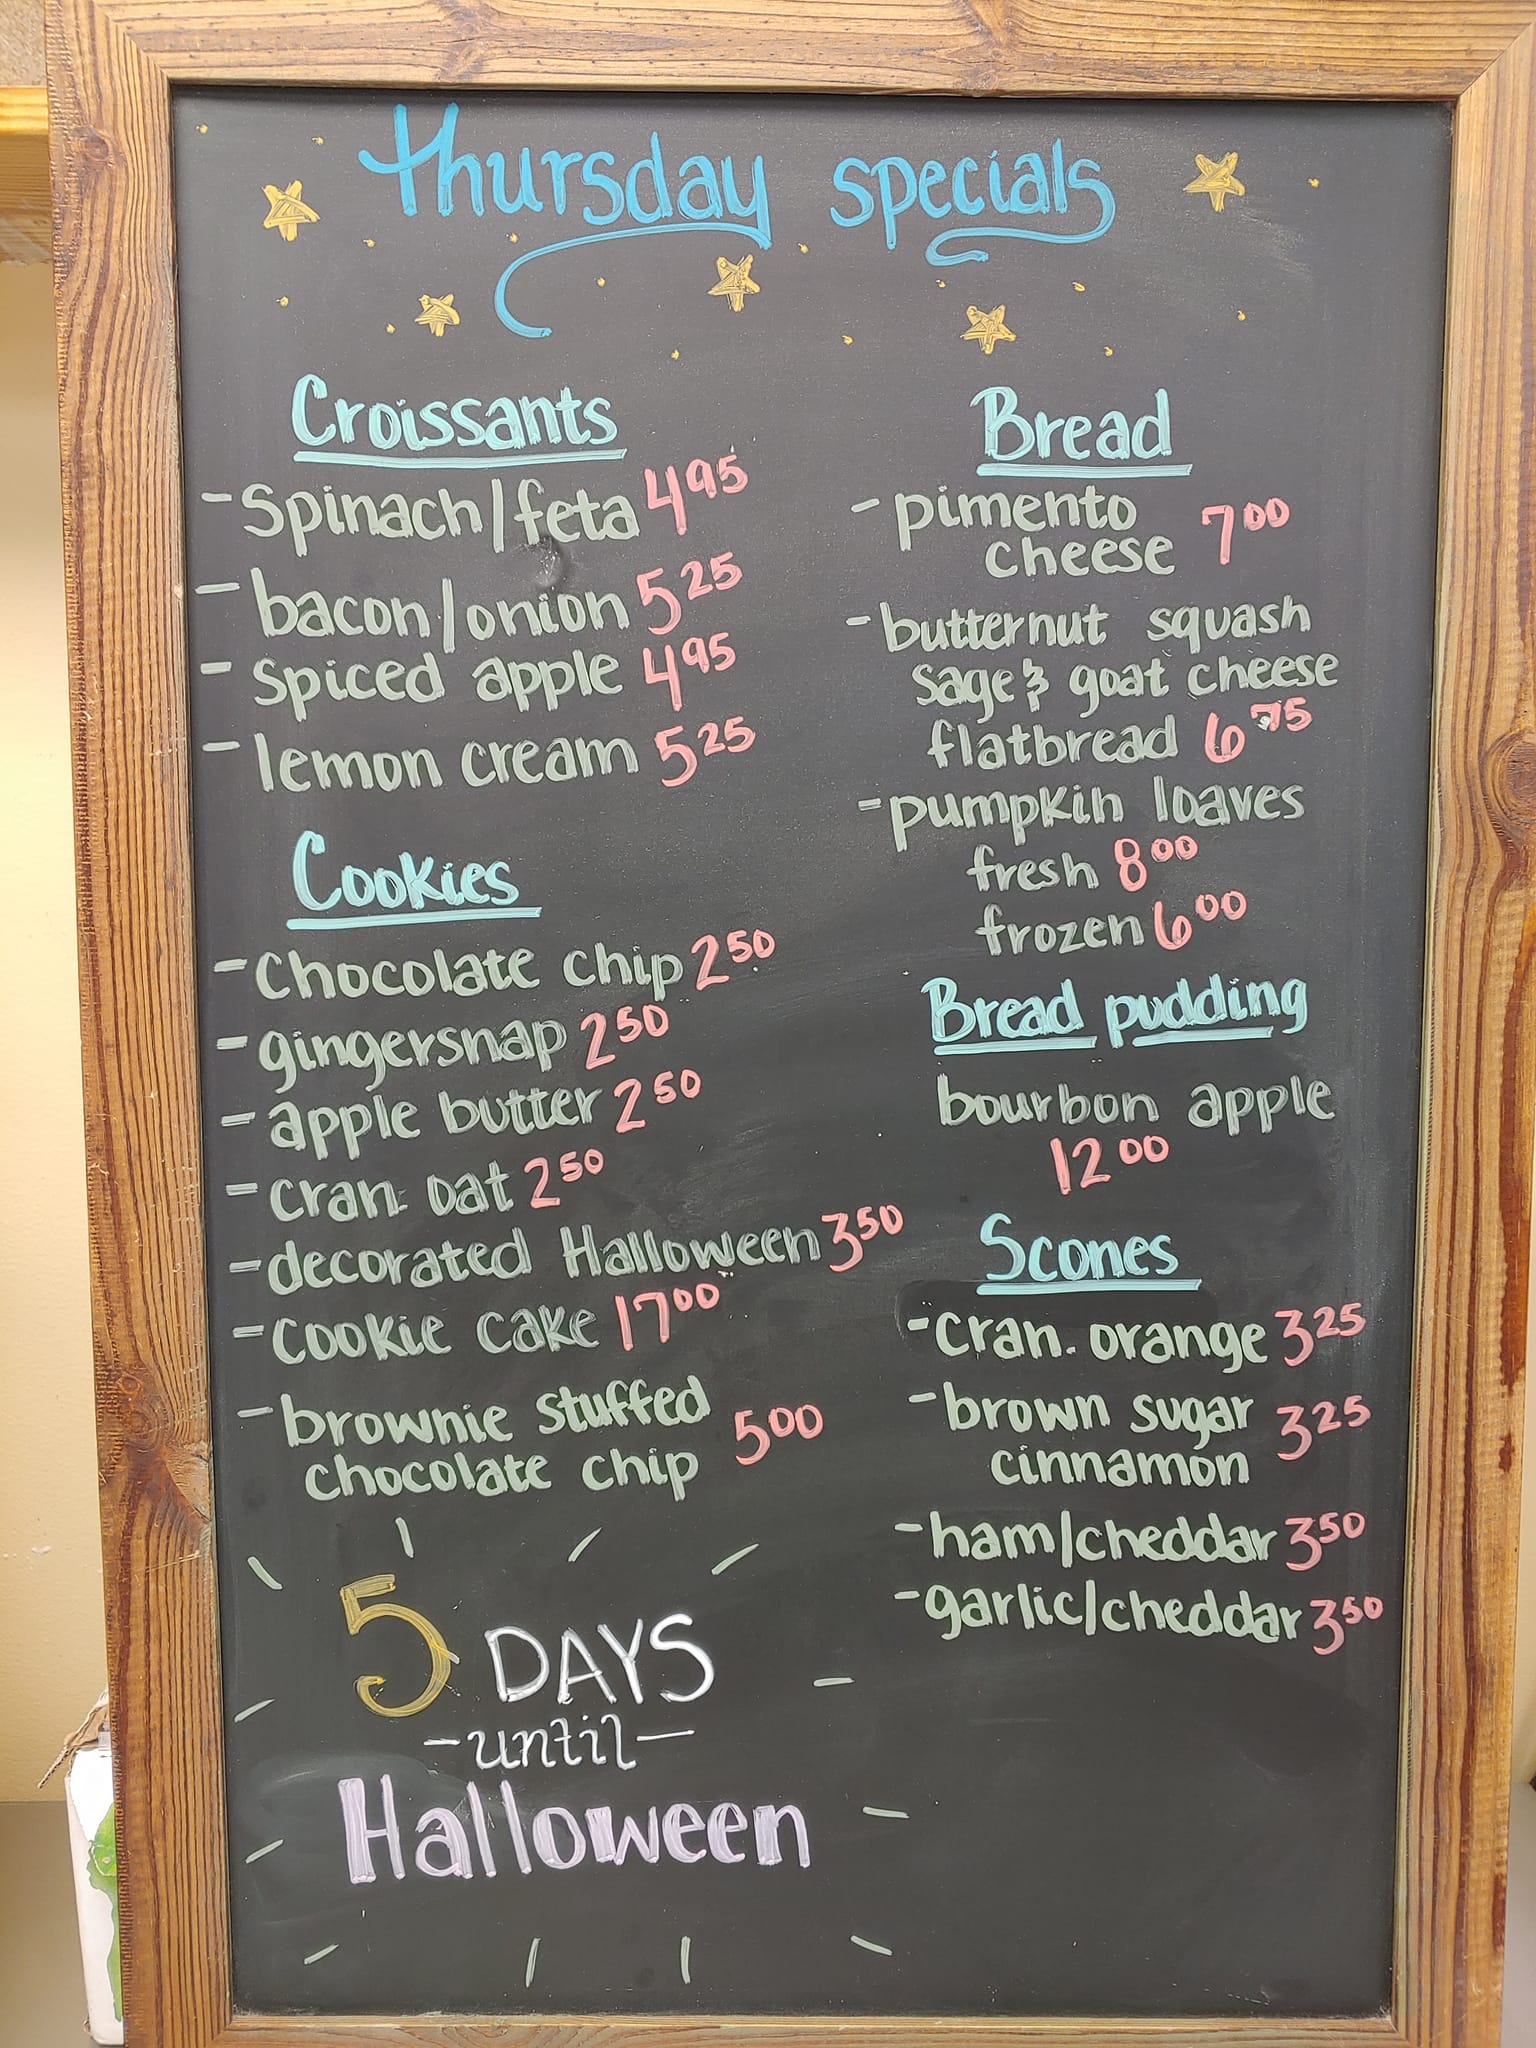 thursday specials
Croissants
- spinach/feta 4.95
- bacon/onion 5.25
- spiced apple 4.95
- lemon cream 5.25
Cookies
- chocolate chip 2.50
- gingersnap 2.50
- apple butter 2.50
- cran. oat 2.50
- decorated Halloween 3.50
- cookie cake 17.00
- brownie stuffed
chocolate chip 5.00
5 DAYS
-until-
Halloween
Bread
- pimento
cheese 7.00
- butternut squash
sage & goat cheese
flatbread 6.75
- pumpkin loaves
fresh 8.00
frozen 6.00
Bread pudding
bourbon apple
12.00
Scones
- cran. orange 3.25
- brown sugar
cinnamon 3.25
- ham/cheddar 3.50
- garlic/cheddar 3.50